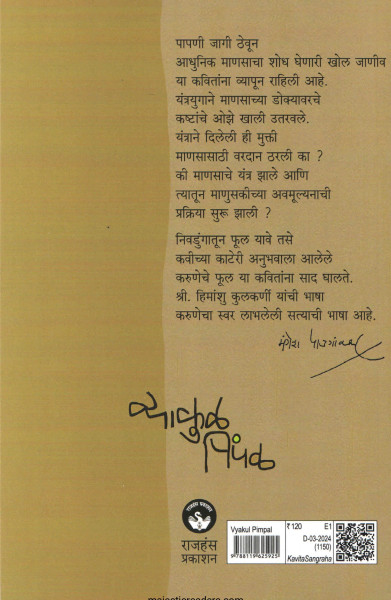 पापणी जागी ठेवून
आधुनिक माणसाचा शोध घेणारी खोल जाणीव
या कवितांना व्यापून राहिली आहे.
यंत्रयुगाने माणसाच्या डोक्यावरचे
कष्टांचे ओझे खाली उतरवले.
यंत्राने दिलेली ही मुक्ती
माणसासाठी वरदान ठरली का ?
की माणसाचे यंत्र झाले आणि
त्यातून माणुसकीच्या अवमूल्यनाची
प्रक्रिया सुरू झाली ?
निवडुंगातून फूल यावे तसे
कवीच्या काटेरी अनुभवाला आलेले
करुणेचे फूल या कवितांना साद घालते.
श्री. हिमांशु कुलकर्णी यांची भाषा
करुणेचा स्वर लाभलेली सत्याची भाषा आहे.
मंगेश पाडगांवकर
व्याकुळ
पिंपळ
राजहंस
प्रकाशन
Vyakul Pimpal
9 788119 625925
₹120 E1
D-03-2024
(1150)
KavitaSangraha